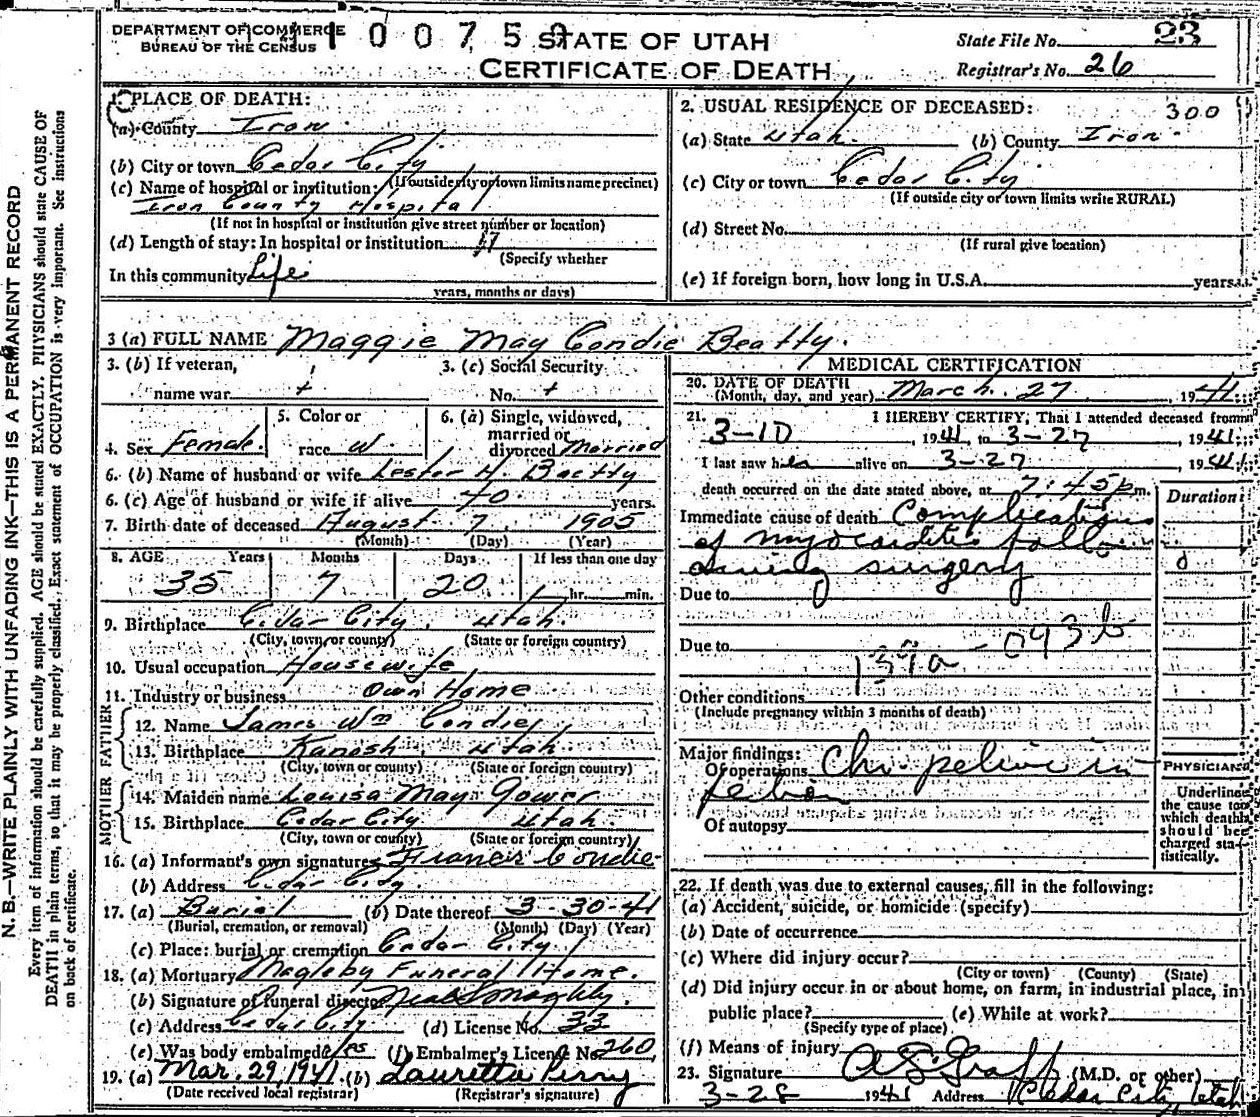 N. B.—WRITE PLAINLY WITH UNFADING INK—THIS IS A PERMANENT RECORD
Every item of information should be carefully supplied. AGE should be stated EXACTLY. PHYSICIANS should state CAUSE OF
DEATH in plain terms, so that it may be properly classified. Exact statement of OCCUPATION is very important. See instructions
on back of certificate.
DEPARTMENT OF COMMERCE
BUREAU OF THE CENSUS
STATE OF UTAH
CERTIFICATE OF DEATH
State File No. 23
Registrar's No. 26
1. PLACE OF DEATH:
(a) County Iron
(b) City or town Cedar City
(If outside city or town limits name precinct)
(c) Name of hospital or institution:
Iron County Hospital
(If not in hospital or institution give street number or location)
(d) Length of stay: In hospital or institution 17
(Specify whether
In this community Life
years, months or days)
2. USUAL RESIDENCE OF DECEASED: 300
(a) State Utah (b) County Iron
(c) City or town Cedar City
(If outside city or town limits write RURAL)
(d) Street No.
(If rural give location)
(e) If foreign born, how long in U.S.A. years
3 (a) FULL NAME Maggie May Condie Beatty
3. (b) If veteran, name war +
3. (c) Social Security No. +
4. Sex Female
5. Color or race W.
6. (a) Single, widowed, married or divorced Married
6. (b) Name of husband or wife Lester H. Beatty
6. (c) Age of husband or wife if alive 40 years.
7. Birth date of deceased August 7 1905
(Month) (Day) (Year)
8. AGE Years Months Days If less than one day
35 7 20 hr. min.
9. Birthplace Cedar City, Utah
(City, town, or county) (State or foreign country)
10. Usual occupation Housewife
11. Industry or business Own Home
FATHER
12. Name James Wm Condie
13. Birthplace Kanosh, Utah
(City, town or county) (State or foreign country)
MOTHER
14. Maiden name Louisa May Gower
15. Birthplace Cedar City Utah
(City, town or county) (State or foreign country)
16. (a) Informant's own signature Francis Condie
(b) Address Cedar City
17. (a) Burial (b) Date thereof 3-30-41
(Burial, cremation, or removal) (Month) (Day) (Year)
(c) Place: burial or cremation Cedar City
18. (a) Mortuary Magleby Funeral Home.
(b) Signature of funeral director Neal S Magleby.
(c) Address Cedar City (d) License No. 33
(e) Was body embalmed yes (f) Embalmer's License No. 260
19. (a) Mar. 29, 1941 (b) Lauretta Perry
(Date received local registrar) (Registrar's signature)
MEDICAL CERTIFICATION
20. DATE OF DEATH March 27 1941
(Month, day, and year)
21. I HEREBY CERTIFY, That I attended deceased from
3-10, 1941, to 3-27, 1941
I last saw her alive on 3-27, 1941
death occurred on the date stated above, at 7:45 p m.
Duration
Immediate cause of death Complications
of myocarditis follo
owing surgery
Due to
Due to 139a - 093b
Other conditions
(Include pregnancy within 3 months of death)
Major findings:
Of operations Chr. pelvic in
fection
Of autopsy
PHYSICIAN
Underline
the cause to
which death
should be
charged sta-
tistically.
22. If death was due to external causes, fill in the following:
(a) Accident, suicide, or homicide (specify)
(b) Date of occurrence
(c) Where did injury occur?
(City or town) (County) (State)
(d) Did injury occur in or about home, on farm, in industrial place, in
public place? (e) While at work?
(Specify type of place)
(f) Means of injury
23. Signature A L Graff (M.D. or other)
3-28 1941 Address Cedar City, Utah